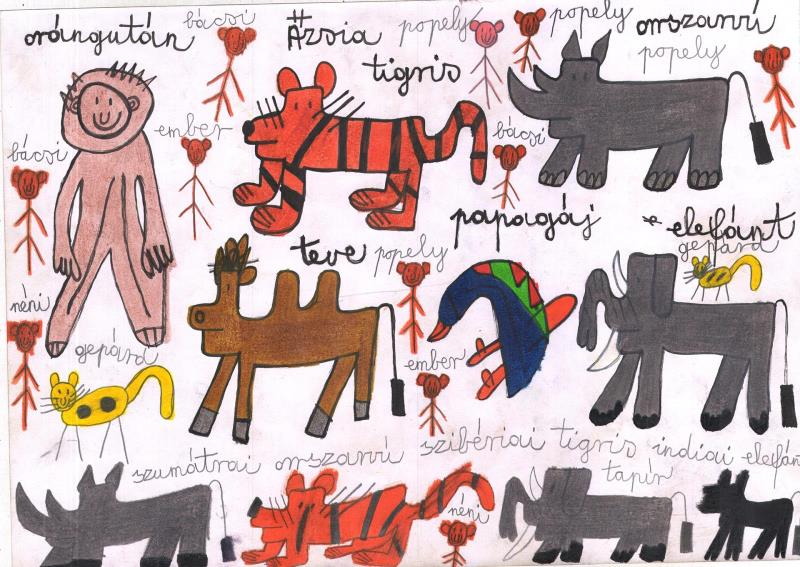 orángután
bácsi
Ázsia
popely
popely
orszarvú
popely
tigris
bácsi
ember
bácsi
papagáj
elefánt
gepárd
teve
popely
néni
gepárd
ember
szumátrai orszarvú
szibériai tigris
indiai elefán
tapír
néni